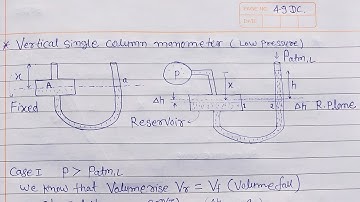 4.9 DC.
* Vertical single column manometer (Low Pressure)
Patm,L
x
A
a
P
Δh
x
h
Fixed
1
2
Δh
R.Plane
Reservoir
Case I P > Patm,L
We know that Volume rise Vr = Vf (Volume fall)